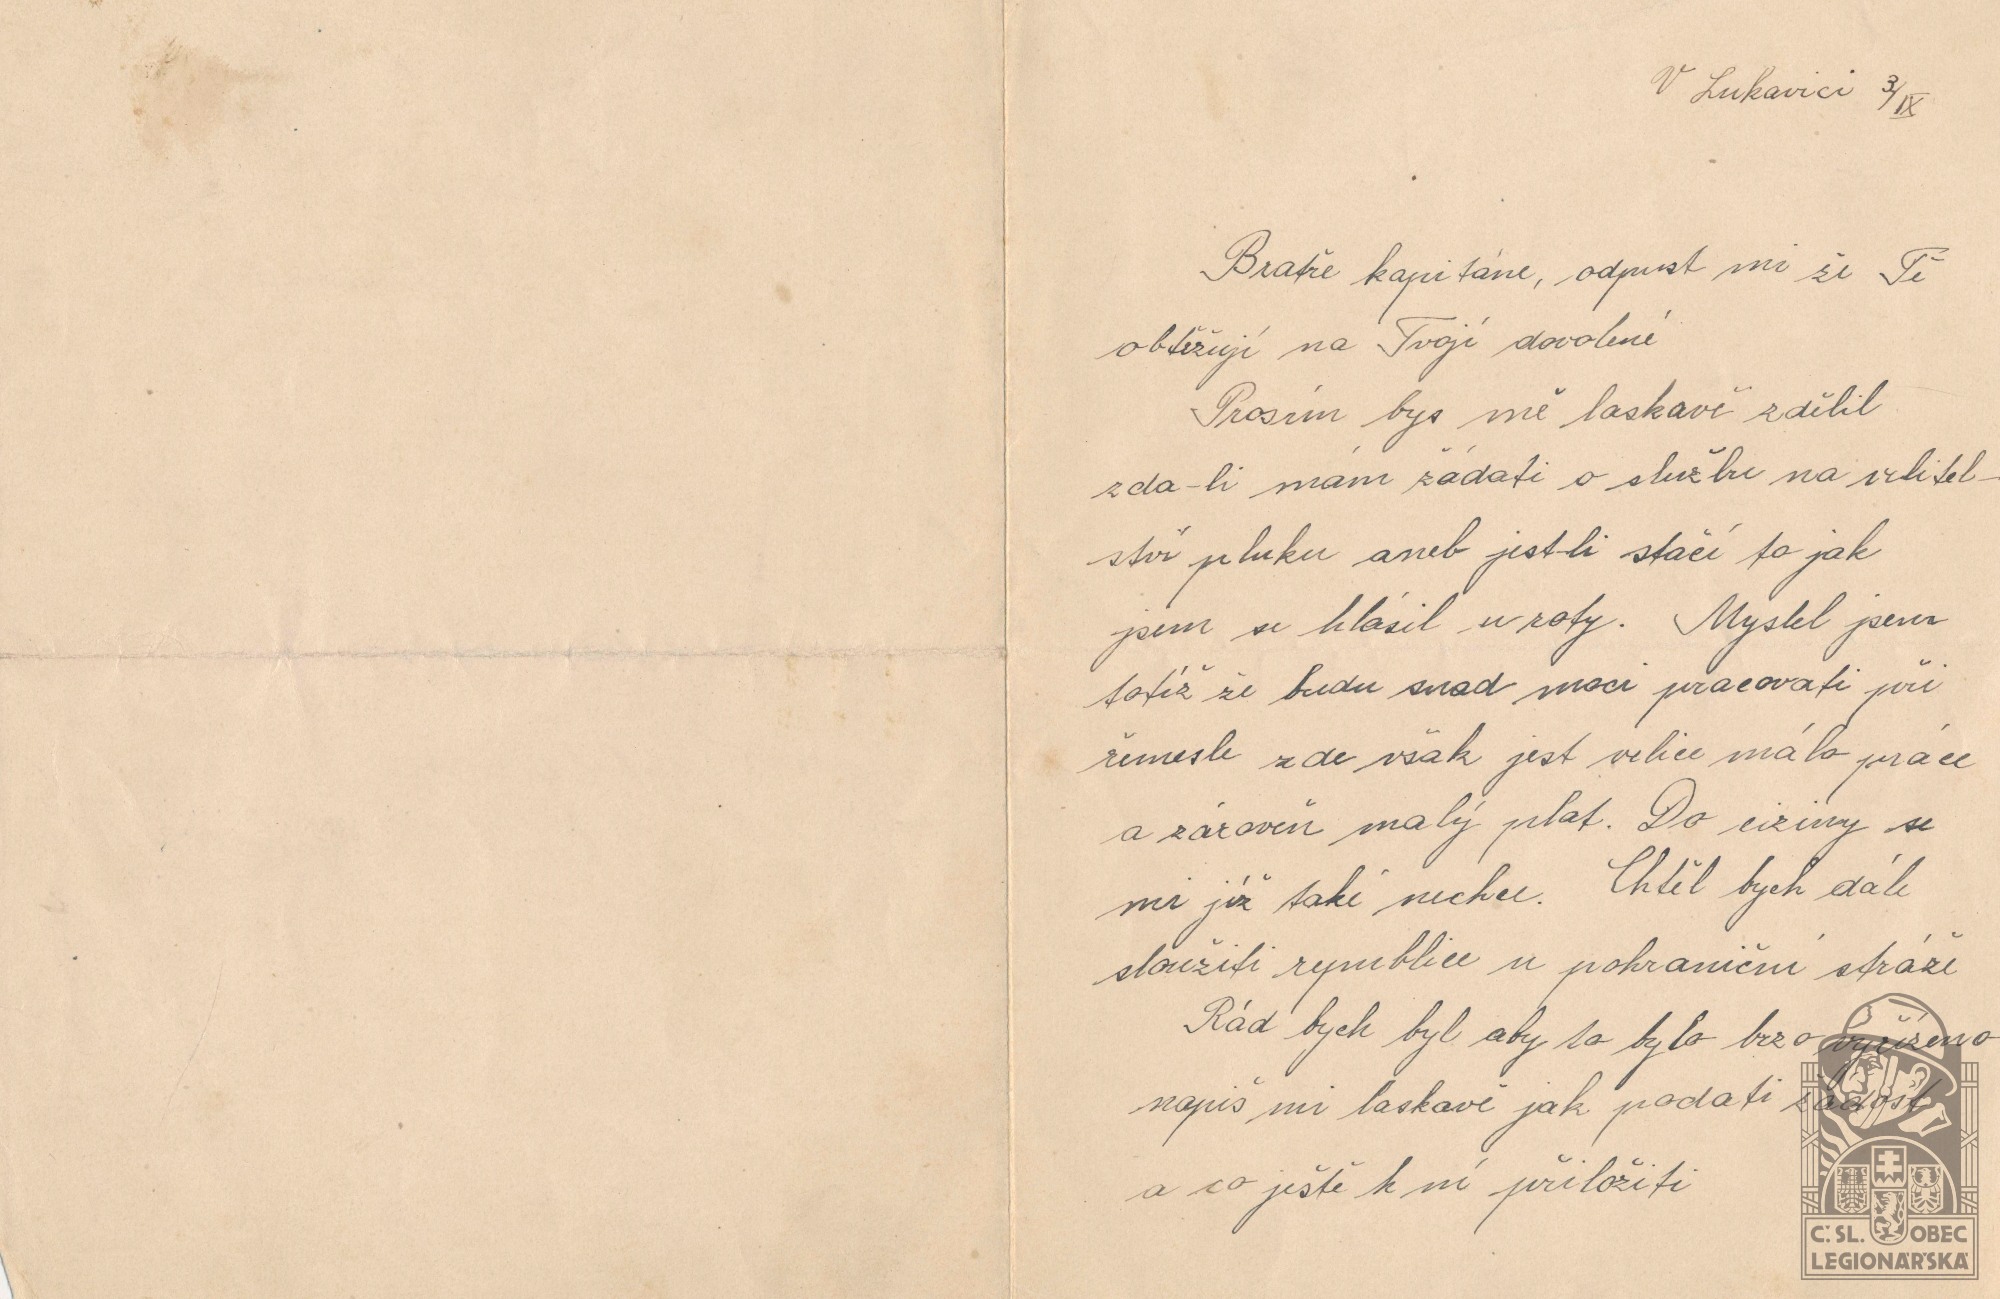 V Lukavici 3/IX
Bratře kapitáne, odpust mi že Tě
obtěžují na Tvojí dovolené
Prosím bys mě laskavě zdělil
zda-li mám žádati o službu na velitel-
ství pluku aneb jest-li stačí to jak
jsem se hlásil u roty. Myslel jsem
totiž že budu snad moci pracovati při
řemesle zde však jest velice málo práce
a zároveň malý plat. Do ciziny se
mi již také nechce. Chtěl bych dále
sloužiti republice u pohraniční stráže
Rád bych byl aby to bylo brzo vyřízeno
napiš mi laskavě jak podati žádost
a co ještě k ní přiložiti
Č. SL. OBEC
LEGIONÁŘSKÁ